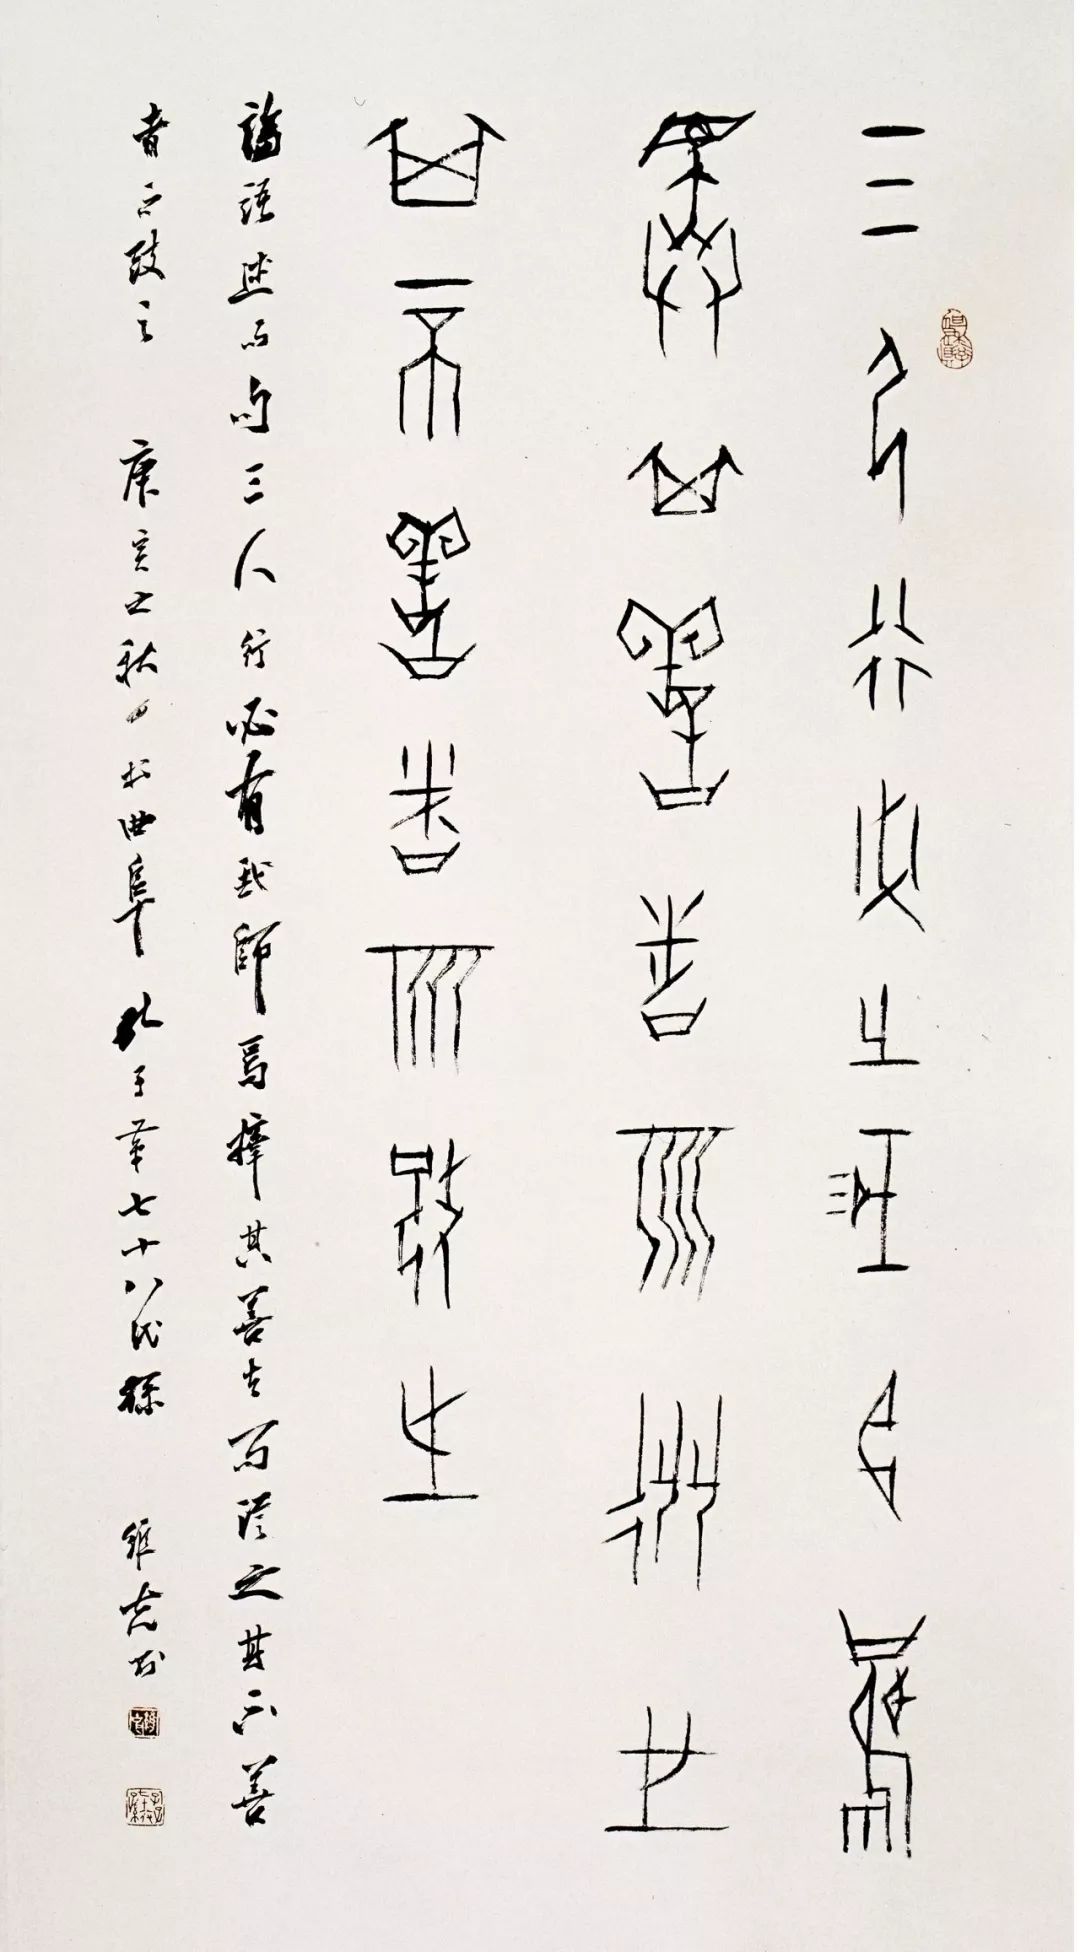 三人行必有我師焉
擇其善者而從之
其不善者而改之
論語述而句三人行必有我師焉擇其善者而從之其不善
者而改之 庚寅之秋月於曲阜 孔子第七十八代孫 維克